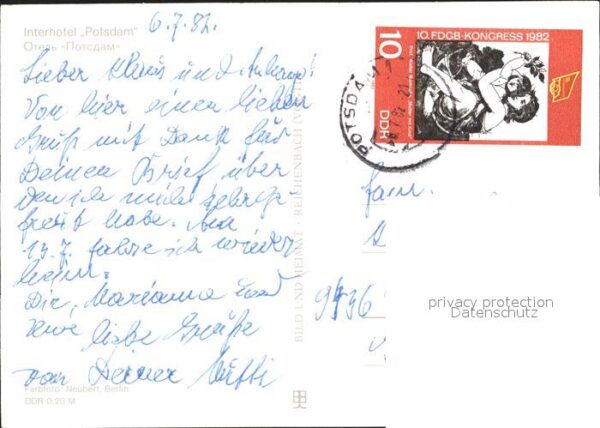 Interhotel „Potsdam"
Отель «Потсдам»
6.7.82.
Lieber Klaus und Anhang!
Von hier einen lieben
Gruß mit Dank für
Deinen Brief über
den ich mich sehr ge-
freut habe. Am
13.7. fahre ich wieder
heim.
Dir, Marianne und
liebe Grüße
von Deiner Mutti
Farbfoto: Neubert, Berlin
DDR 0,20 M
BILD UND HEIMAT · REICHENBACH
10. FDGB-KONGRESS 1982
10
DDR
POTSDAM
Fam.
privacy protection
Datenschutz